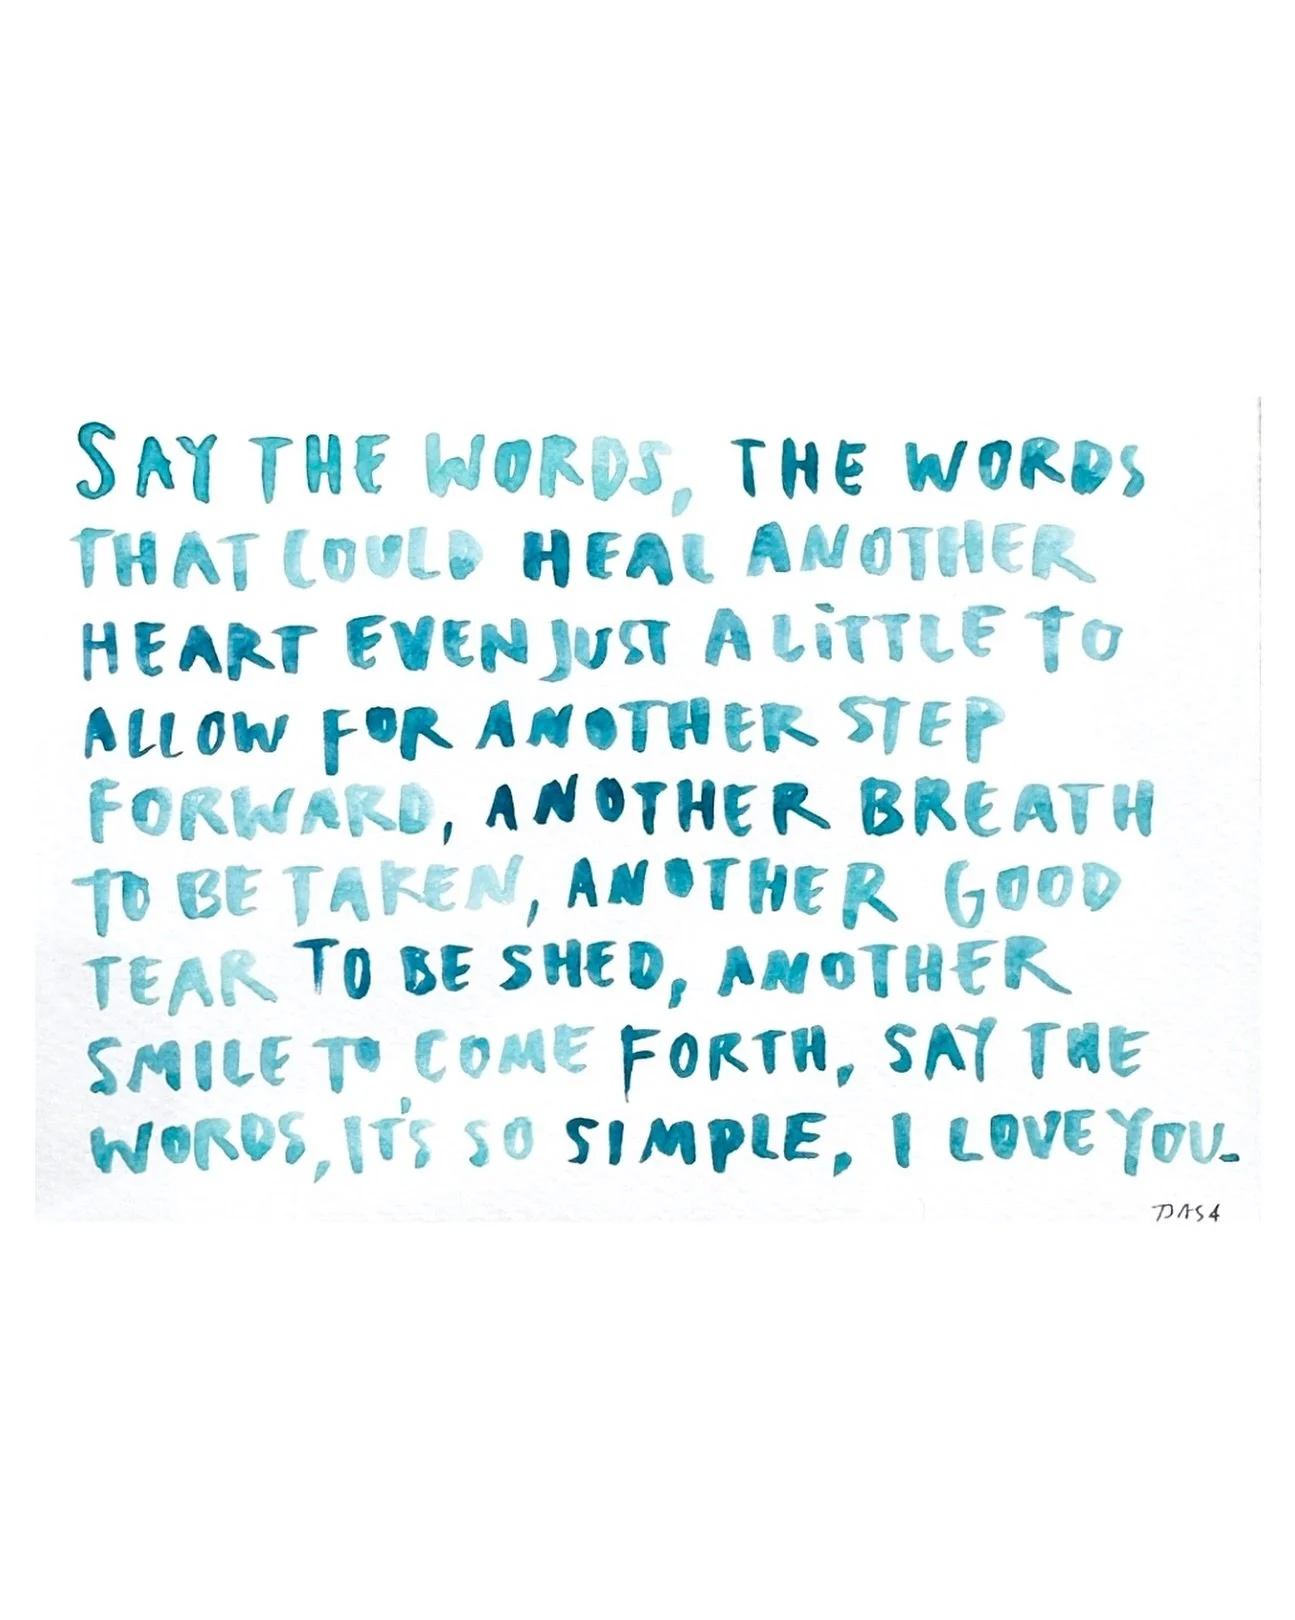 SAY THE WORDS, THE WORDS
THAT COULD HEAL ANOTHER
HEART EVEN JUST A LiTTLE TO
ALLOW FOR ANOTHER STEP
FORWARD, ANOTHER BREATH
TO BE TAKEN, ANOTHER GOOD
TEAR TO BE SHED, ANOTHER
SMILE TO COME FORTH, SAY THE
WORDS, IT'S SO SIMPLE, I LOVE YOU.